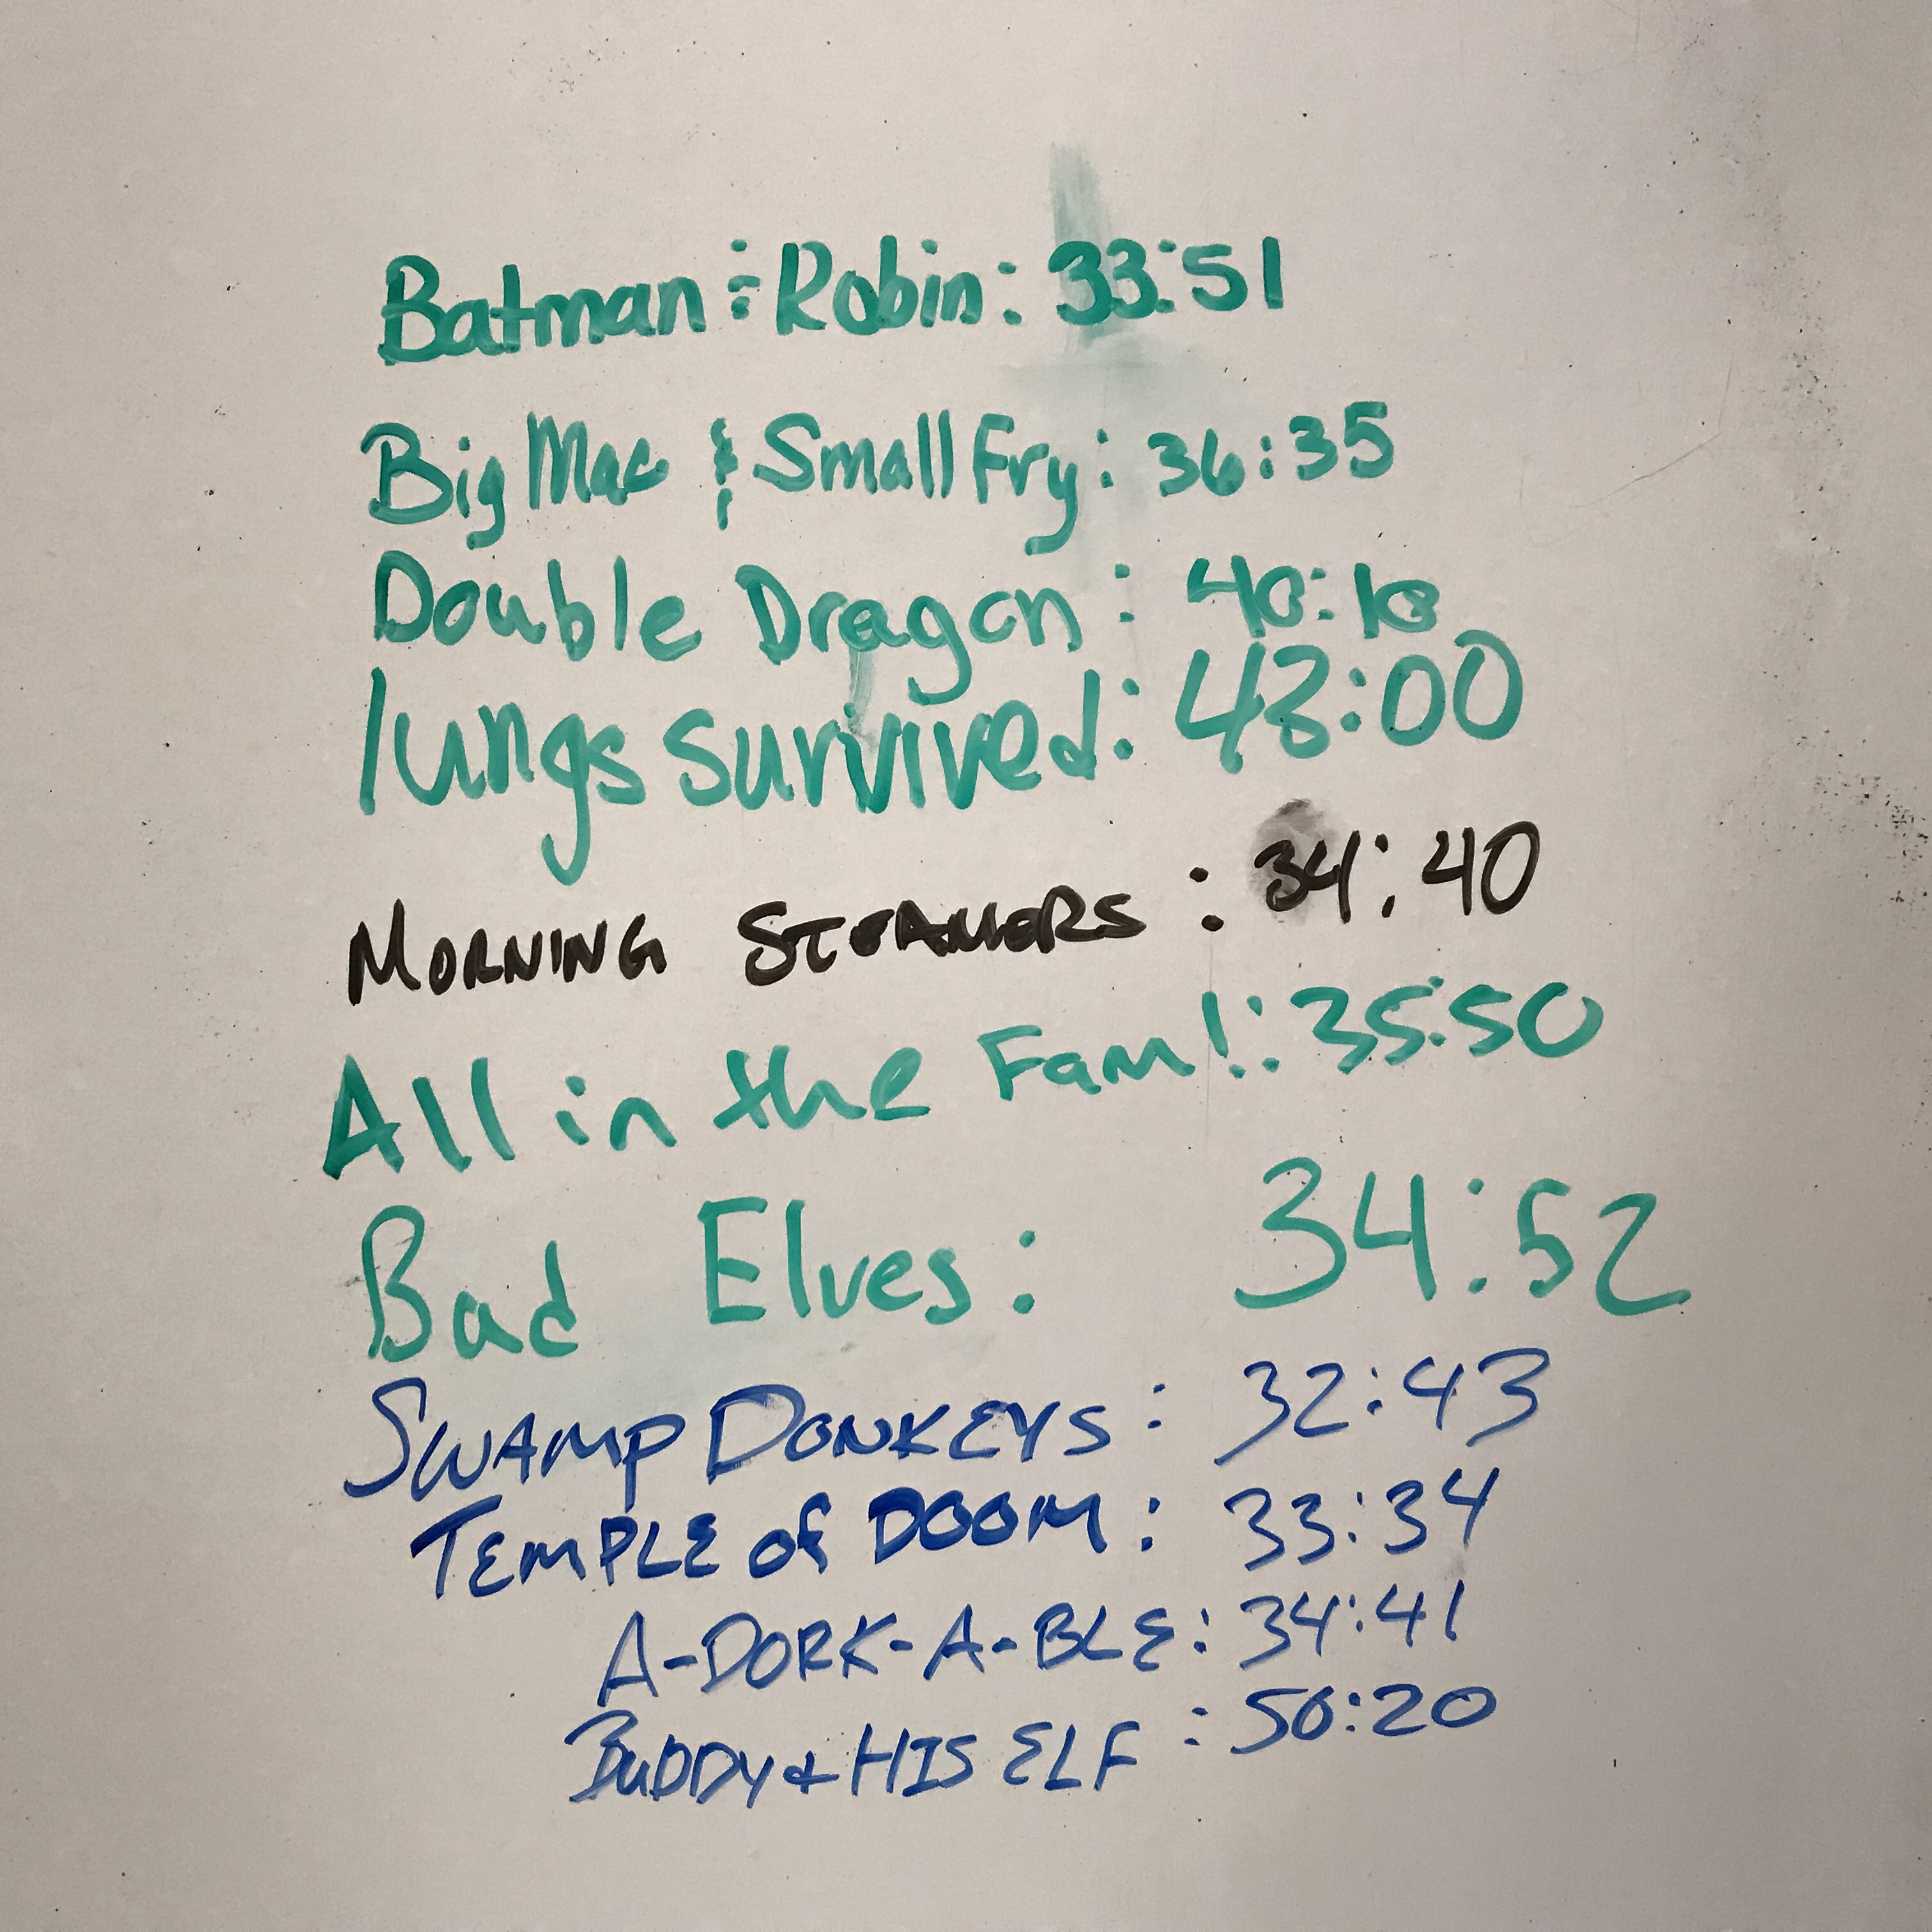 Batman & Robin: 33:51
Big Mac & Small Fry: 36:35
Double Dragon: 40:18
lungs survived: 48:00
MORNING STEAMERS: 34:40
All in the Fam!: 35:50
Bad Elves: 34:52
SWAMP DONKEYS: 32:43
TEMPLE of DOOM: 33:34
A-DORK-A-BLE: 34:41
BUDDY & HIS ELF: 50:20